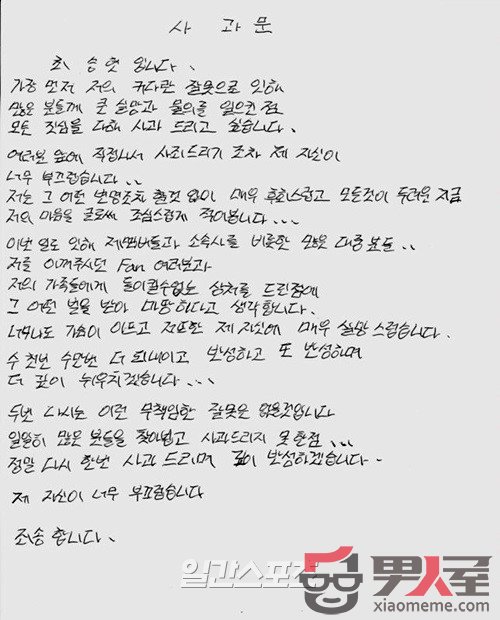 사 과 문
최 승 현 입니다.
가장 먼저 저의 커다란 잘못으로 인해
많은 분들께 큰 실망과 물의를 일으킨 점
모든 진심을 다해 사과 드리고 싶습니다.
여러분 앞에 직접나서 사죄드리기 조차 제 자신이
너무 부끄럽습니다..
저는 그 어떤 변명조차 할것 없이 매우 후회스럽고 모든것이 두려운 지금
저의 마음을 글로써 조심스럽게 적어봅니다...
이번 일로 인해 제 멤버들과 소속사를 비롯한 많은 대중 분들..
저를 아껴주시던 Fan 여러분과
저의 가족들에게 돌이킬수없는 상처를 드린점에
그 어떤 벌을 받아 마땅하다고 생각합니다.
너무나도 가슴이 아프고 저또한 제 자신에 매우 실망 스럽습니다.
수 천번 수만번 더 되내이고 반성하고 또 반성하며
더 깊이 뉘우치겠습니다....
두번 다시는 이런 무책임한 잘못은 없을것입니다
일일이 많은 분들을 찾아뵙고 사과드리지 못한점...
정말 다시 한번 사과 드리며 깊이 반성하겠습니다.
제 자신이 너무 부끄럽습니다
죄송 합니다.
일간스포츠
51 男人屋
xiaomeme.com